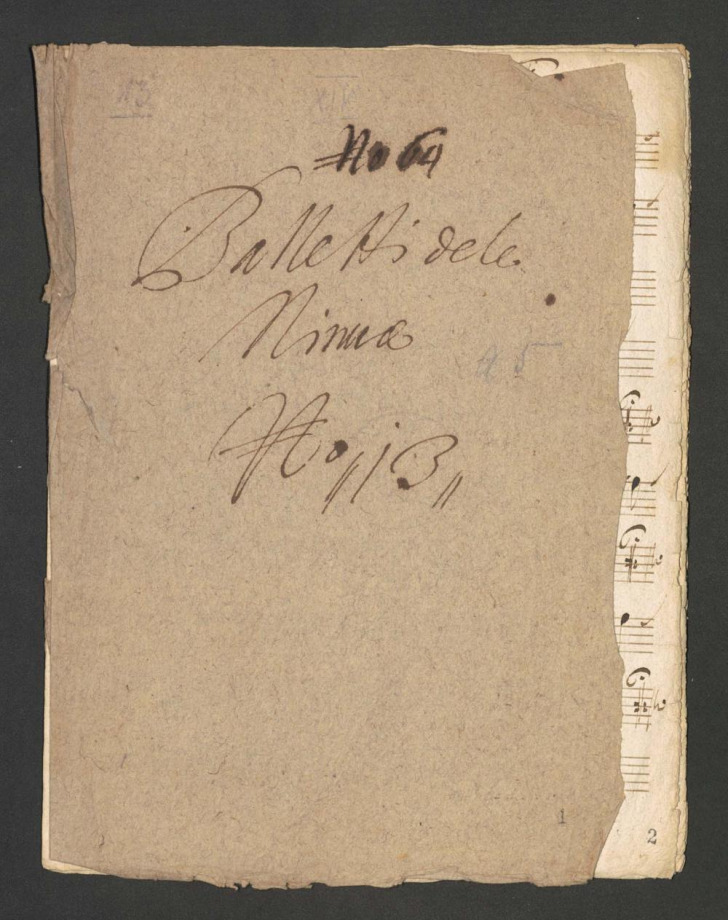 N3
XIX
No 64
Balletti dele
Ninue
45
No „13„
1
2